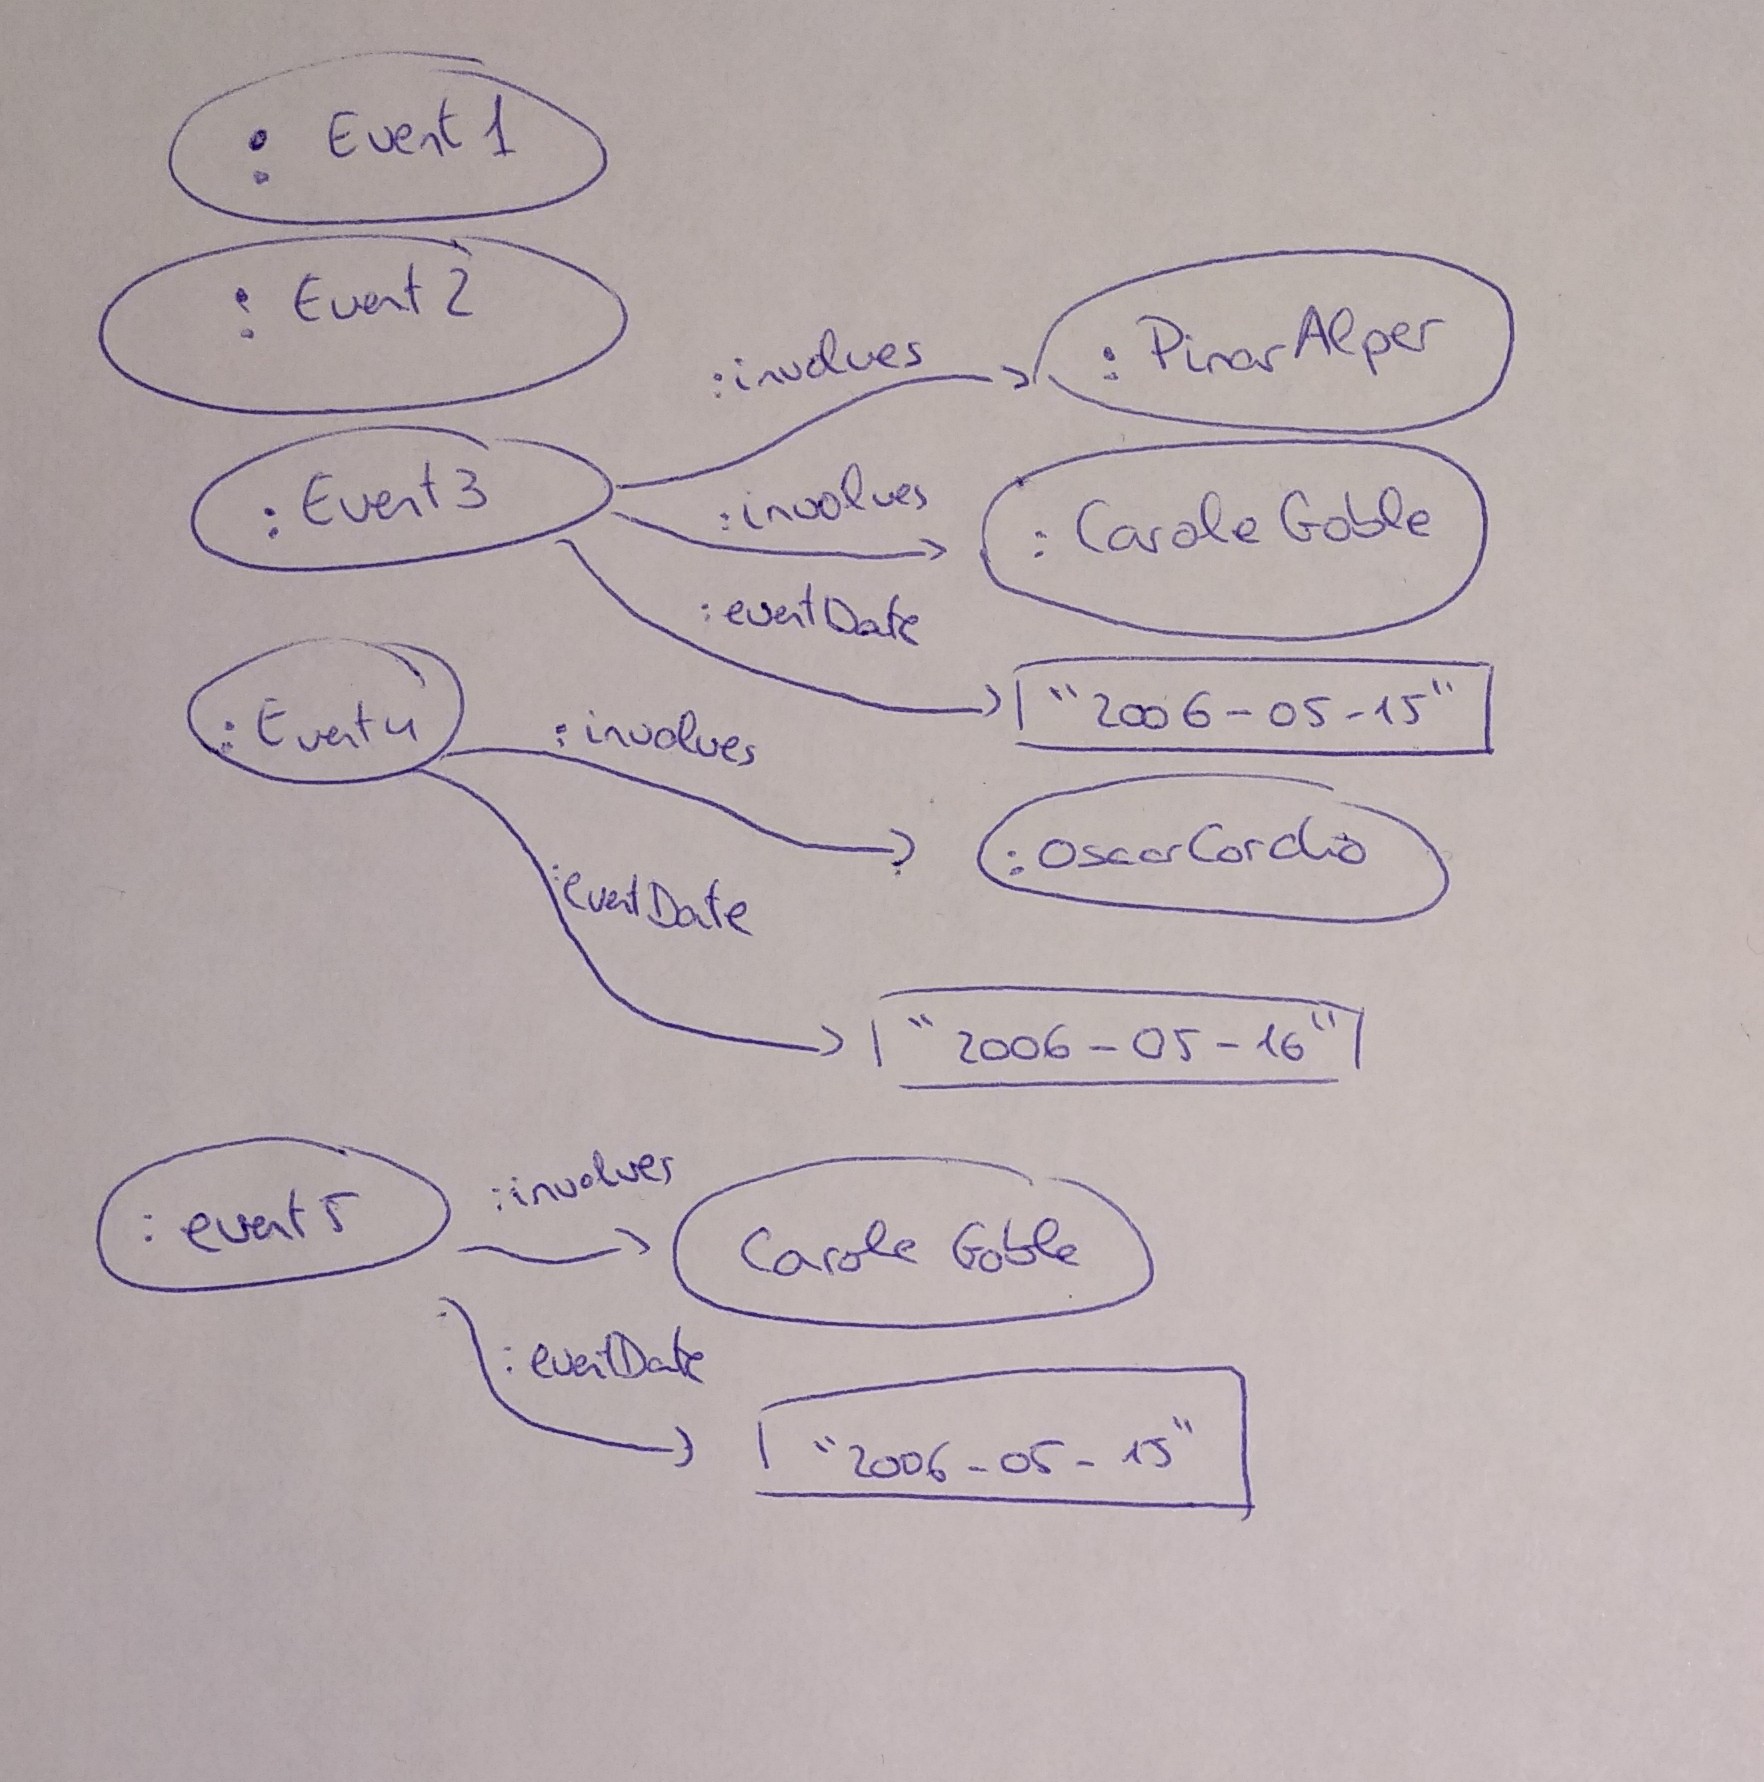 : Event 1
: Event 2
:involves
: PinarAlper
: Event 3
:involves
: Carole Goble
:eventDate
"2006-05-15"
: Event 4
:involves
:OscarCorcho
:eventDate
"2006-05-16"
: event 5
:involves
Carole Goble
:eventDate
"2006-05-15"